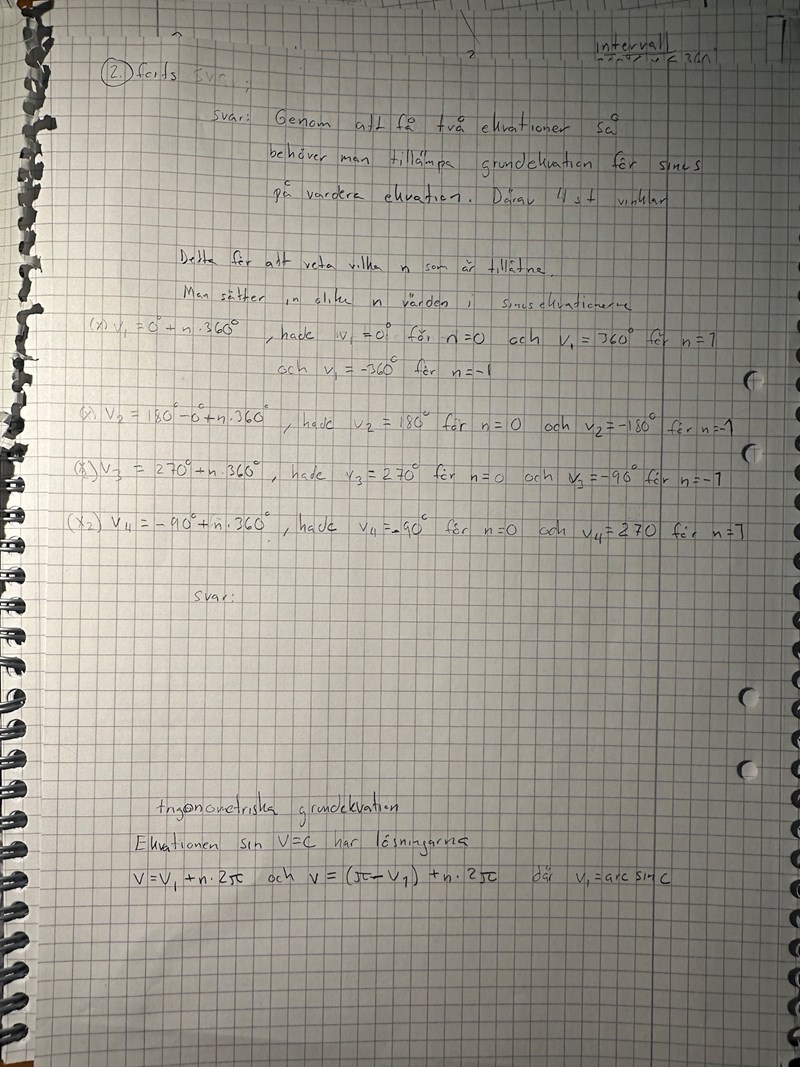 intervall
2. forts
svar: Genom att få två ekvationer så
behöver man tillämpa grundekvation för sinus
på vardera ekvation. Därav 4 st vinklar
Detta för att veta vilka n som är tillåtna.
Man sätter in olika n värden i sinusekvationerna
V₁ = 0° + n·360°, hade v₁ = 0° för n=0 och v₁ = 360° för n=1
och v₁ = -360° för n=-1
V₂ = 180°-0°+n·360°, hade v₂ = 180° för n=0 och v₂=-180° för n=-1
V₃ = 270°+n·360°, hade v₃=270° för n=0 och v₃=-90° för n=-1
(x₂) V₄ = -90°+n·360°, hade v₄=-90° för n=0 och v₄=270 för n=1
svar:
trigonometriska grundekvation
Ekvationen sin V=C har lösningarna
V=V₁+n·2π och V=(π-V₁)+n·2π där v₁=arc sin C